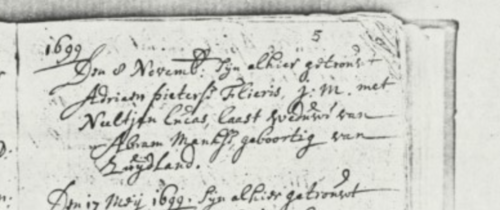 5
1699
Den 8 Novemb: Sijn alhier getrouwt
Adriaen pieterse Flieris, J: M. met
Neeltjen Lucas, laast weduwe van
Abram Mankse, geboortig van
Zuijdland.
Den 17 Meij 1699. Sijn alhier getrouwt